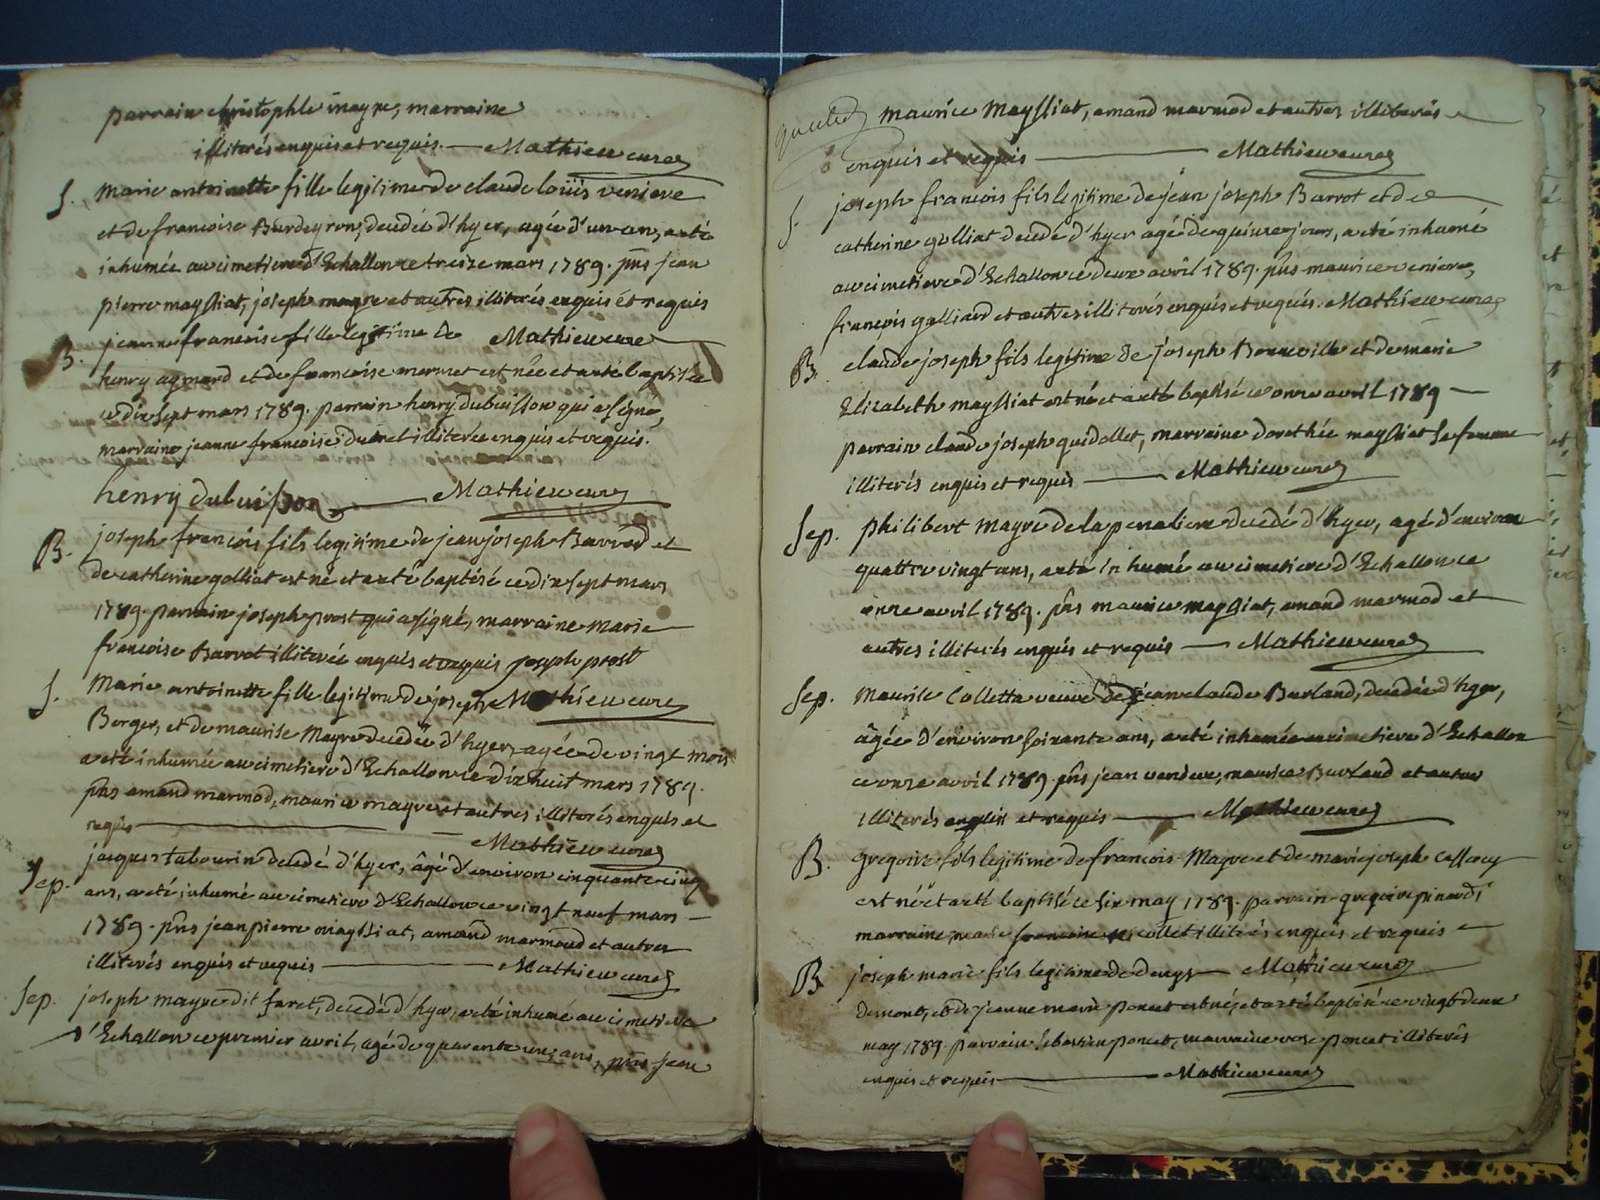 parrain christophle mayre, marraine
illiterés enquis et requis. Mathieu curé
S. Marie antoinette fille legitime de claude loüis veniere
et de francoise Burdeyron, decedée d'hyer, agée d'un an, a eté
inhumée au cimetiere d'Echallon ce treize mars 1789. pns jean
pierre mayssiat, joseph mayre et autres illiterés enquis et requis
B. jeanne francoise fille legitime de Mathieu curé
henry aymard et de francoise mermet est née et a eté baptisée
ce dix sept mars 1789. parrain henry dubuisson qui a signé,
marraine jeanne francoise illiterée enquis et requis.
henry dubuisson Mathieu curé
B. joseph francois fils legitime de jean joseph Barrod et
de catherine golliat est né et a eté baptisé ce dix sept mars
1789. parrain joseph prost qui a signé, marraine marie
francoise Barrot illiterée enquis et requis joseph prost
S. Marie antoinette fille legitime de joseph Mathieu curé
Berger, et de maurise Mayre decedée d'hyer, agée de vingt mois
a eté inhumée au cimetiere d'Echallon ce dix huit mars 1789.
pns amand marmod, maurice mayre et autres illiterés enquis et
requis Mathieu curé
Sep. jacques tabourin decedé d'hyer, âgé d'environ cinquante cinq
ans, a eté inhumé au cimetiere d'Echallon ce vingt neuf mars
1789. pns jean pierre mayssiat, amand marmoud et autres
illiterés enquis et requis Mathieu curé
Sep. joseph mayre dit faret, decedé d'hyer, a eté inhumé au cimetiere
d'Echallon ce premier avril, agé de quarente un ans, pns jean
maurice Mayssiat, amand marmod et autres illiterés
enquis et requis Mathieu curé
S. joseph francois fils legitime de jean joseph Barrot et de
catherine golliat decedé d'hyer agé de quinze jours, a eté inhumé
au cimetiere d'Echallon ce deux avril 1789. pns maurice veniere,
francois galliard et autres illiterés enquis et requis. Mathieu curé
B. claude joseph fils legitime de joseph Bonneville et de marie
Elizabeth mayssiat est né et a eté baptisé ce onze avril 1789
parrain claude joseph quidollet, marraine dorothée mayssiat sa femme
illiterés enquis et requis Mathieu curé
Sep. philibert mayre de la decedé d'hyer, agé d'environ
quattre vingt ans, a eté inhumé au cimetiere d'Echallon ce
onze avril 1789. pns maurice mayssiat, amand marmod et
autres illiterés enquis et requis Mathieu curé
Sep. Maurise Colletta veuve de jean claude Burland, decedée d'hyer,
âgée d'environ soixante ans, a eté inhumée au cimetiere d'Echallon
ce onze avril 1789. pns jean vendeur, maurice Burland et autres
illiterés enquis et requis Mathieu curé
B. gregoire fils legitime de francois Mayre et de marie joseph
est né et a eté baptisé ce six may 1789. parrain gregoire pinard,
marraine marie francoise collet illiterés enquis et requis
B. joseph marie fils legitime de denys Mathieu curé
Demont, et de jeanne marie poncet est né, et a eté baptisé ce vingt deux
may 1789. parrain sebastien poncet, marraine rose poncet illiterés
enquis et requis Mathieu curé